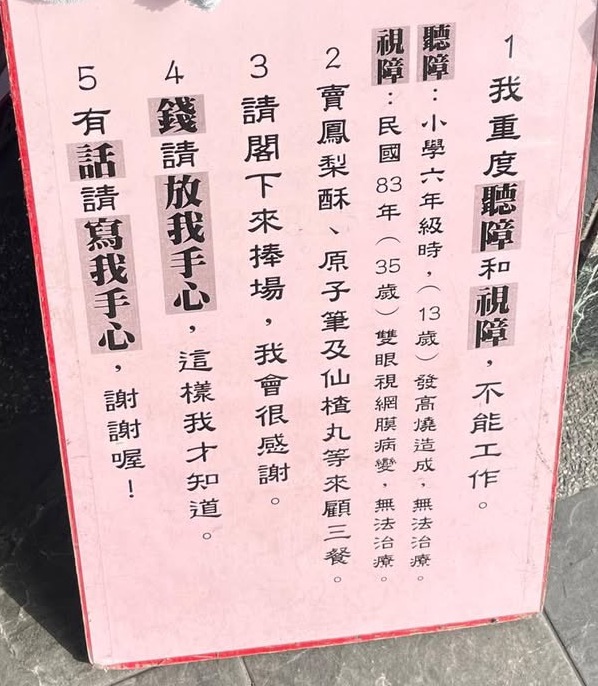 1 我重度聽障和視障，不能工作。
聽障：小學六年級時，（13歲）發高燒造成，無法治療。
視障：民國83年（35歲）雙眼視網膜病變，無法治療。
2 賣鳳梨酥、原子筆及仙楂丸等來顧三餐。
3 請閣下來捧場，我會很感謝。
4 錢請放我手心，這樣我才知道。
5 有話請寫我手心，謝謝喔！